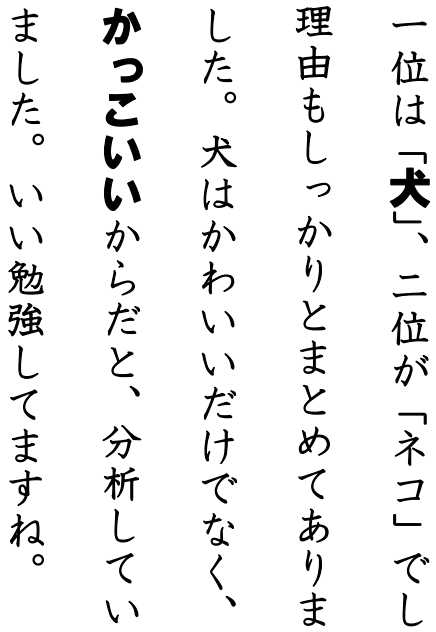 一位は「犬」、二位が「ネコ」でし
理由もしっかりとまとめてありま
した。犬はかわいいだけでなく、
かっこいいからだと、分析してい
ました。いい勉強してますね。